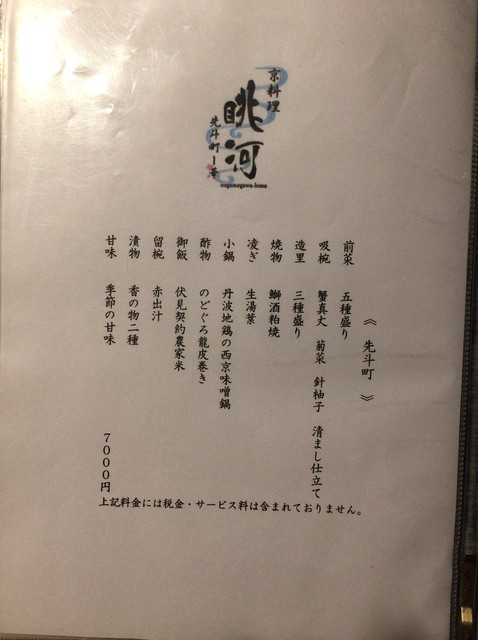 京料理
眺河
先斗町
nagamegawa-hana
《 先斗町 》
前菜 五種盛り
吸椀 蟹真丈 菊菜 針柚子 清まし仕立て
造里 三種盛り
焼物 鰤酒粕焼
凌ぎ 生湯葉
小鍋 丹波地鶏の西京味噌鍋
酢物 のどぐろ龍皮巻き
御飯 伏見契約農家米
留椀 赤出汁
漬物 香の物二種
甘味 季節の甘味
7000円
上記料金には税金・サービス料は含まれておりません。